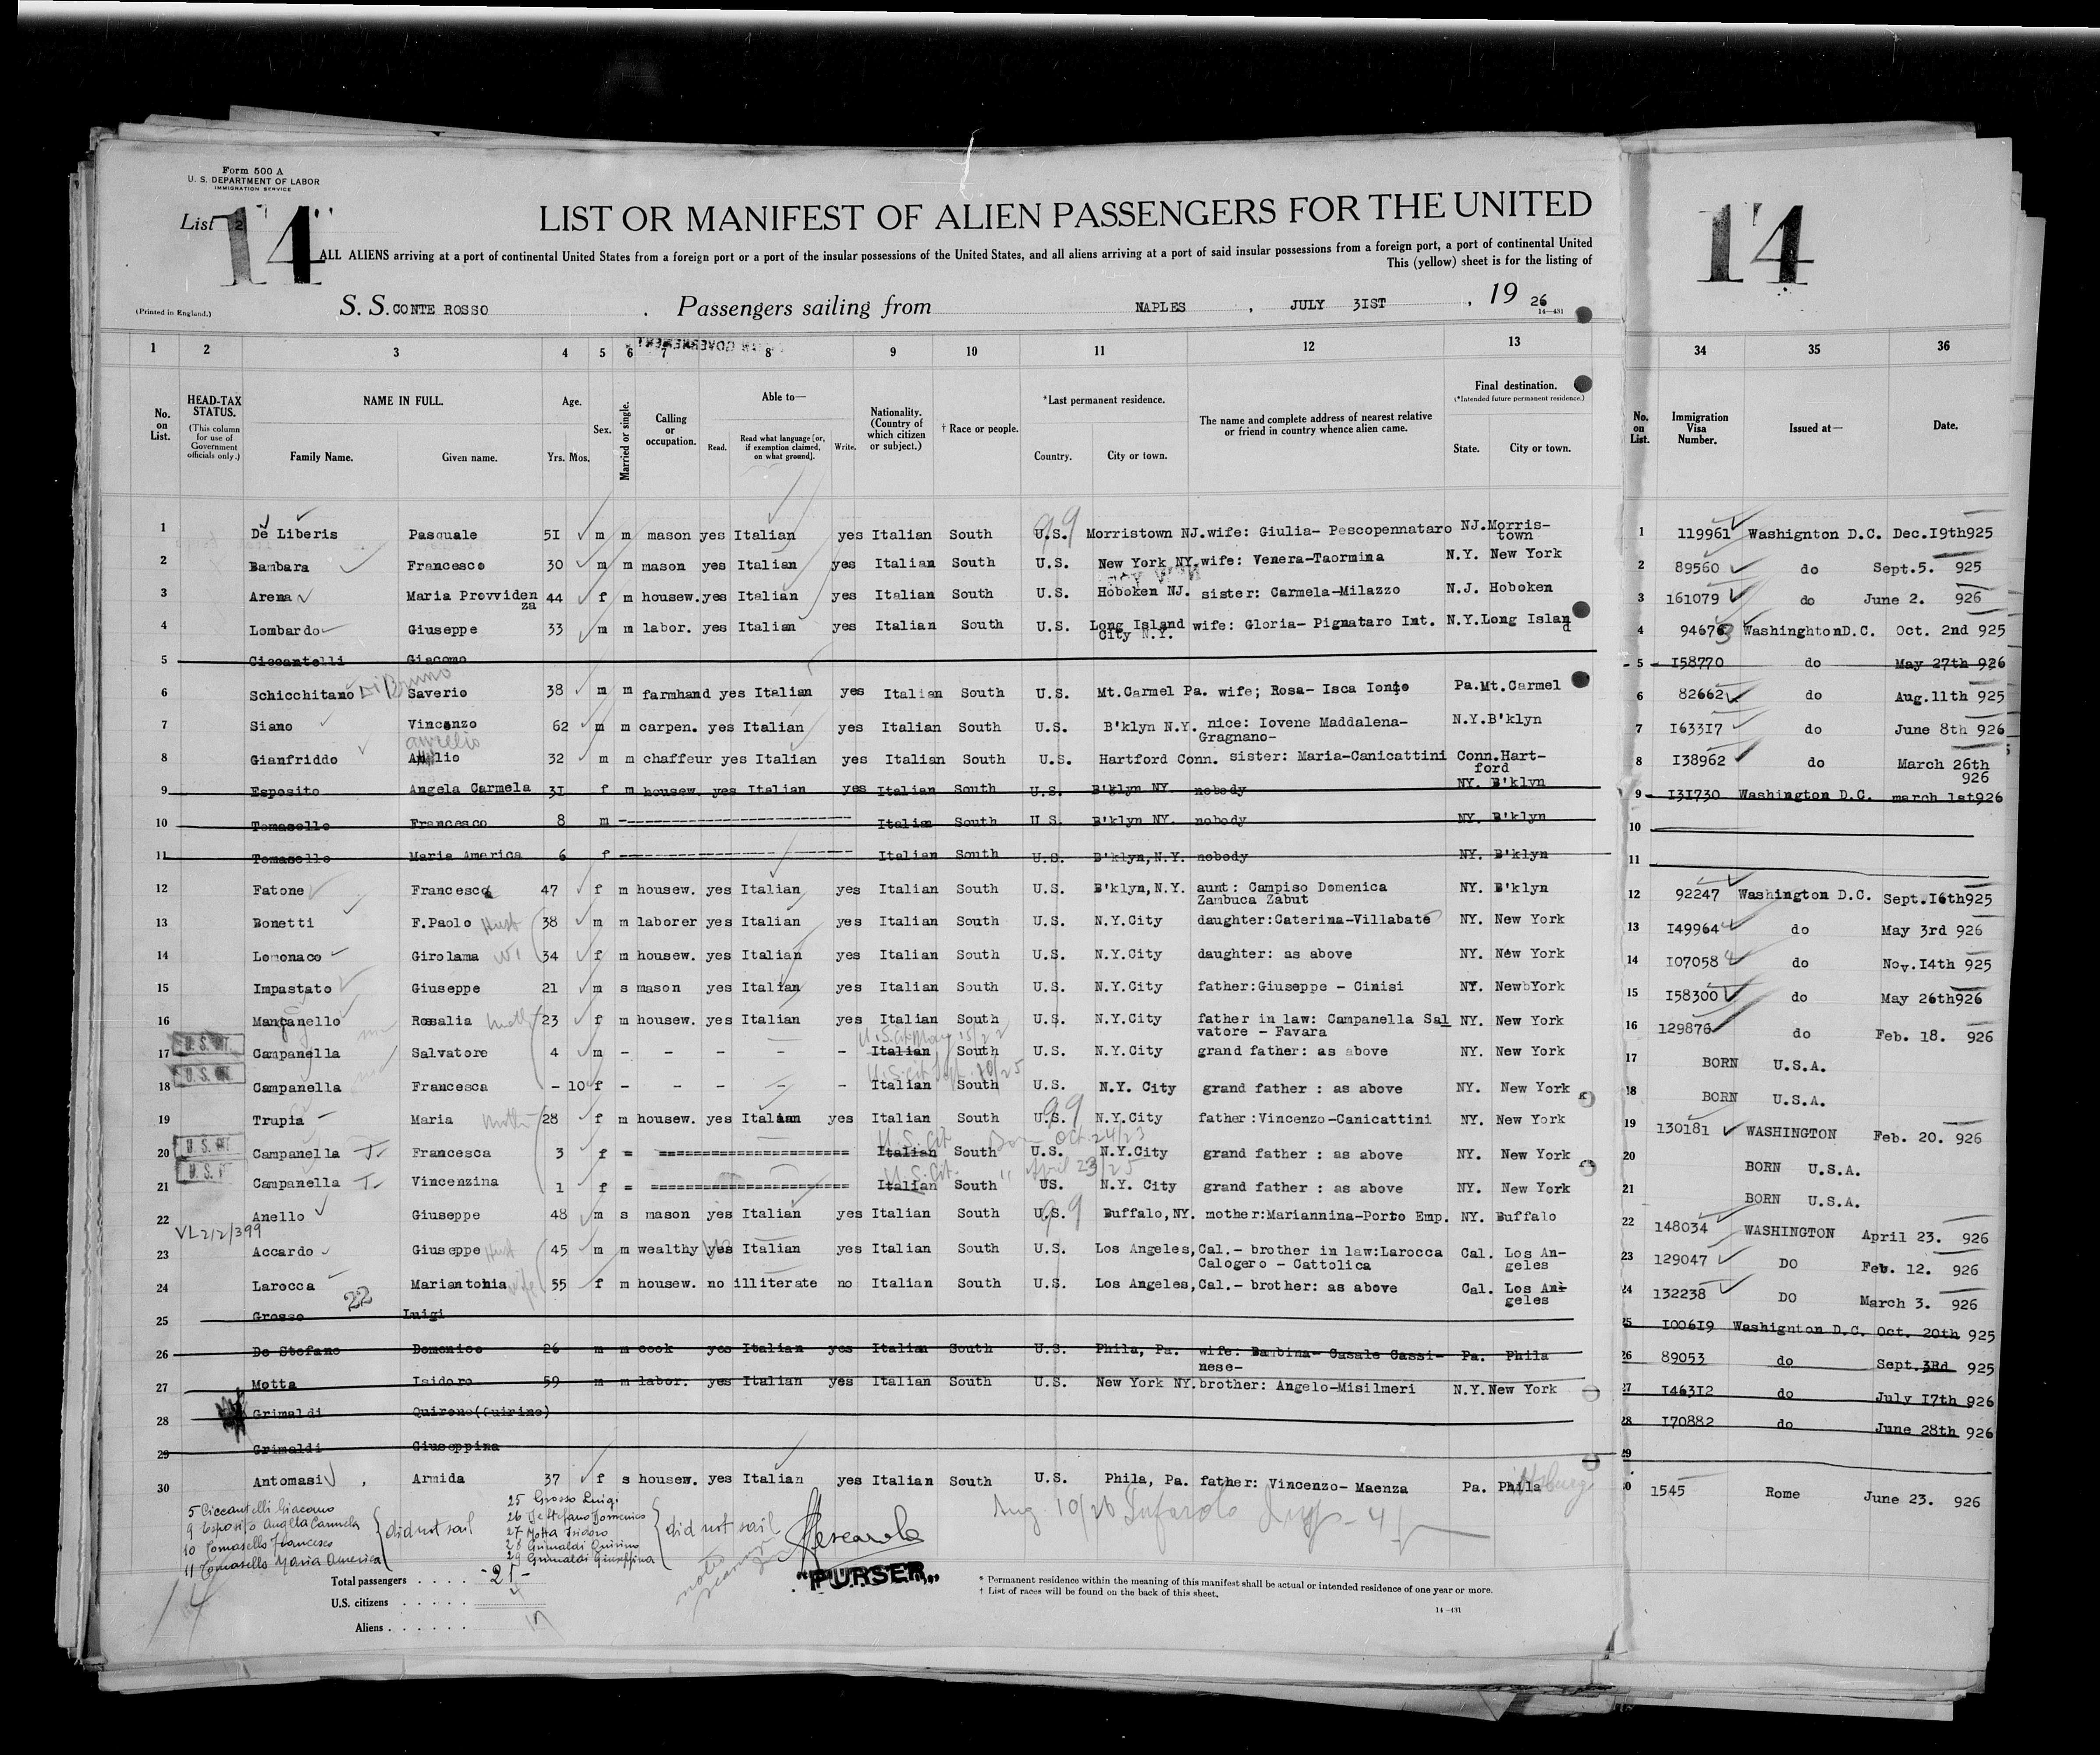 Form 500 A
U. S. DEPARTMENT OF LABOR
IMMIGRATION SERVICE
List 14
14
LIST OR MANIFEST OF ALIEN PASSENGERS FOR THE UNITED
ALL ALIENS arriving at a port of continental United States from a foreign port or a port of the insular possessions of the United States, and all aliens arriving at a port of said insular possessions from a foreign port, a port of continental United
This (yellow) sheet is for the listing of
(Printed in England.)
S. S. CONTE ROSSO . Passengers sailing from NAPLES , JULY 3IST , 19 26
14—431
1 2 3 4 5 6 7 8 9 10 11 12 13 34 35 36
No. on List.
HEAD-TAX STATUS.
(This column for use of Government officials only.)
NAME IN FULL.
Family Name. Given name.
Age.
Yrs. Mos.
Sex.
Married or single.
Calling or occupation.
Able to—
Read. Read what language [or, if exemption claimed, on what ground]. Write.
Nationality. (Country of which citizen or subject.)
† Race or people.
*Last permanent residence.
Country. City or town.
The name and complete address of nearest relative or friend in country whence alien came.
Final destination.
(*Intended future permanent residence.)
State. City or town.
No. on List.
Immigration Visa Number.
Issued at—
Date.
1 De Liberis Pasquale 5I m m mason yes Italian yes Italian South U.S. Morristown NJ. wife: Giulia- Pescopennataro NJ. Morris-town 1 119961 Washignton D.C. Dec.I9th925
2 Bambara Francesco 30 m m mason yes Italian yes Italian South U.S. New York NY. wife: Venera-Taormina N.Y. New York 2 89560 do Sept.5. 925
3 Arena Maria Provvidenza 44 f m housew. yes Italian yes Italian South U.S. Hoboken NJ. sister: Carmela-Milazzo N.J. Hoboken 3 161079 do June 2. 926
4 Lombardo Giuseppe 33 m m labor. yes Italian yes Italian South U.S. Long Island City N.Y. wife: Gloria- Pignataro Int. N.Y. Long Island 4 94673 WashinghtonD.C. Oct. 2nd 925
5 Ciccantelli Giacomo 5 I58770 do May 27th 926
6 Schicchitano Di Bruno Saverio 38 m m farmhand yes Italian yes Italian South U.S. Mt.Carmel Pa. wife; Rosa- Isca Ionio Pa. Mt.Carmel 6 82662 do Aug.11th 925
7 Siano Vincenzo 62 m m carpen. yes Italian yes Italian South U.S. B'klyn N.Y. nice: Iovene Maddalena-Gragnano- N.Y. B'klyn 7 I633I7 do June 8th 926
Aurelio
8 Gianfriddo 32 m m chaffeur yes Italian yes Italian South U.S. Hartford Conn. sister: Maria-Canicattini Conn. Hart-ford 8 I38962 do March 26th 926
9 Esposito Angela Carmela 3I f m housew. yes Italian yes Italian South U.S. B'klyn NY. nobody NY. B'klyn 9 I3I730 Washington D.C. march 1st926
10 Tomasello Francesco 8 m Italian South U.S. B'klyn NY. nobody NY. B'klyn 10
11 Tomasello Maria America 6 f Italian South U.S. B'klyn, N.Y. nobody NY. B'klyn 11
12 Fatone Francesca 47 f m housew. yes Italian yes Italian South U.S. B'klyn, N.Y. aunt: Campiso Domenica Zambuca Zabut NY. B'klyn 12 92247 Washington D.C. Sept.I6th925
13 Bonetti F.Paolo Husb 38 m m laborer yes Italian yes Italian South U.S. N.Y.City daughter:Caterina-Villabate NY. New York 13 I49964 do May 3rd 926
14 Lomonaco Girolama Wi 34 f m housew. yes Italian yes Italian South U.S. N.Y.City daughter: as above NY. New York 14 I07058 do Nov.I4th 925
15 Impastato Giuseppe 21 m s mason yes Italian yes Italian South U.S. N.Y.City father:Giuseppe - Cinisi NY. NewbYork 15 I58300 do May 26th926
16 Manganello Rosalia Moth 23 f m housew. yes Italian yes Italian South U.S. N.Y.City father in law: Campanella Salvatore - Favara NY. New York 16 129876 do Feb. 18. 926
U.S. CIT.
17 Campanella Salvatore 4 m - - - - - Italian South U.S. N.Y.City grand father: as above NY. New York 17 BORN U.S.A.
U.S. CIT.
18 Campanella Francesca - 10 f - - - - - Italian South U.S. N.Y. City grand father : as above NY. New York 18 BORN U.S.A.
19 Trupia Maria Moth 28 f m housew. yes Italian yes Italian South U.S. N.Y.City father:Vincenzo-Canicattini NY. New York 19 130181 WASHINGTON Feb. 20. 926
U.S. Cit. Born Oct. 24/23
U.S. CIT.
20 Campanella T. Francesca 3 f = Italian South U.S. N.Y.City grand father : as above NY. New York 20 BORN U.S.A.
U.S. Cit. " April 23/25
21 Campanella T. Vincenzina 1 f = Italian South US. N.Y. City grand father : as above NY. New York 21 BORN U.S.A.
22 Anello Giuseppe 48 m s mason yes Italian yes Italian South U.S. 99 Buffalo, NY. mother:Mariannina-Porto Emp. NY. Buffalo 22 148034 WASHINGTON April 23. 926
VL2/2/399
23 Accardo Giuseppe Husb 45 m m wealthy yes Italian yes Italian South U.S. Los Angeles, Cal.- brother in law:Larocca Calogero - Cattolica Cal. Los An-geles 23 129047 DO Feb. 12. 926
24 Larocca Mariantonia wife 55 f m housew. no illiterate no Italian South U.S. Los Angeles, Cal.- brother: as above Cal. Los An-geles 24 132238 DO March 3. 926
22
25 Grosso Luigi 25 I006I9 Washignton D.C. Oct. 20th 925
26 De Stefano Domenico 26 m m cook yes Italian yes Italian South U.S. Phila, Pa. wife: Bambina- Casale Cassi-nese- Pa. Phila 26 89053 do Sept.3Rd 925
27 Motta Isidoro 59 m m labor. yes Italian yes Italian South U.S. New York NY. brother: Angelo-Misilmeri N.Y. New York 27 I463I2 do July I7th 926
28 Grimaldi Quirono(Quirino) 28 I70882 do June 28th 926
29 Grimaldi Giuseppina 29
30 Antomasi Armida 37 f s housew. yes Italian yes Italian South U.S. Phila, Pa. father: Vincenzo- Maenza Pa. Phila 30 1545 Rome June 23. 926
5 Ciccantelli Giacomo
9 Esposito Angela Carmela
10 Tomasello Francesco
11 Tomasello Maria America
did not sail
25 Grosso Luigi
26 De Stefano Domenico
27 Motta Isidoro
28 Grimaldi Quirino
29 Grimaldi Giuseppina
did not sail
Aug 10/26
"PURSER"
14
Total passengers . . . . -21-
U.S. citizens . . . . . 4
Aliens . . . . . . 17
* Permanent residence within the meaning of this manifest shall be actual or intended residence of one year or more.
† List of races will be found on the back of this sheet.
14—431